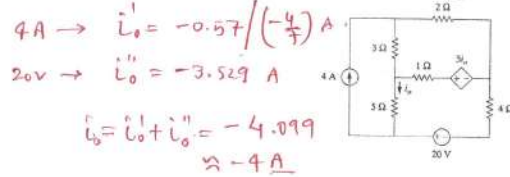 4A → i₀' = -0.57 / (-4/7) A
20V → i₀" = -3.529 A
i₀ = i₀' + i₀" = -4.099
≈ -4 A
2 Ω
3 Ω
1 Ω
4 A
i₀
5 Ω
4 Ω
20 V